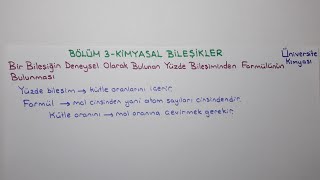 BÖLÜM 3-KİMYASAL BİLEŞİKLER
Üniversite
Kimyası
Bir Bileşiğin Deneysel Olarak Bulunan Yüzde Bileşiminden Formülünün
Bulunması
Yüzde bileşim → kütle oranlarını içerir.
Formül → mol cinsinden yani atom sayıları cinsindendir.
Kütle oranını → mol oranına çevirmek gerekir.